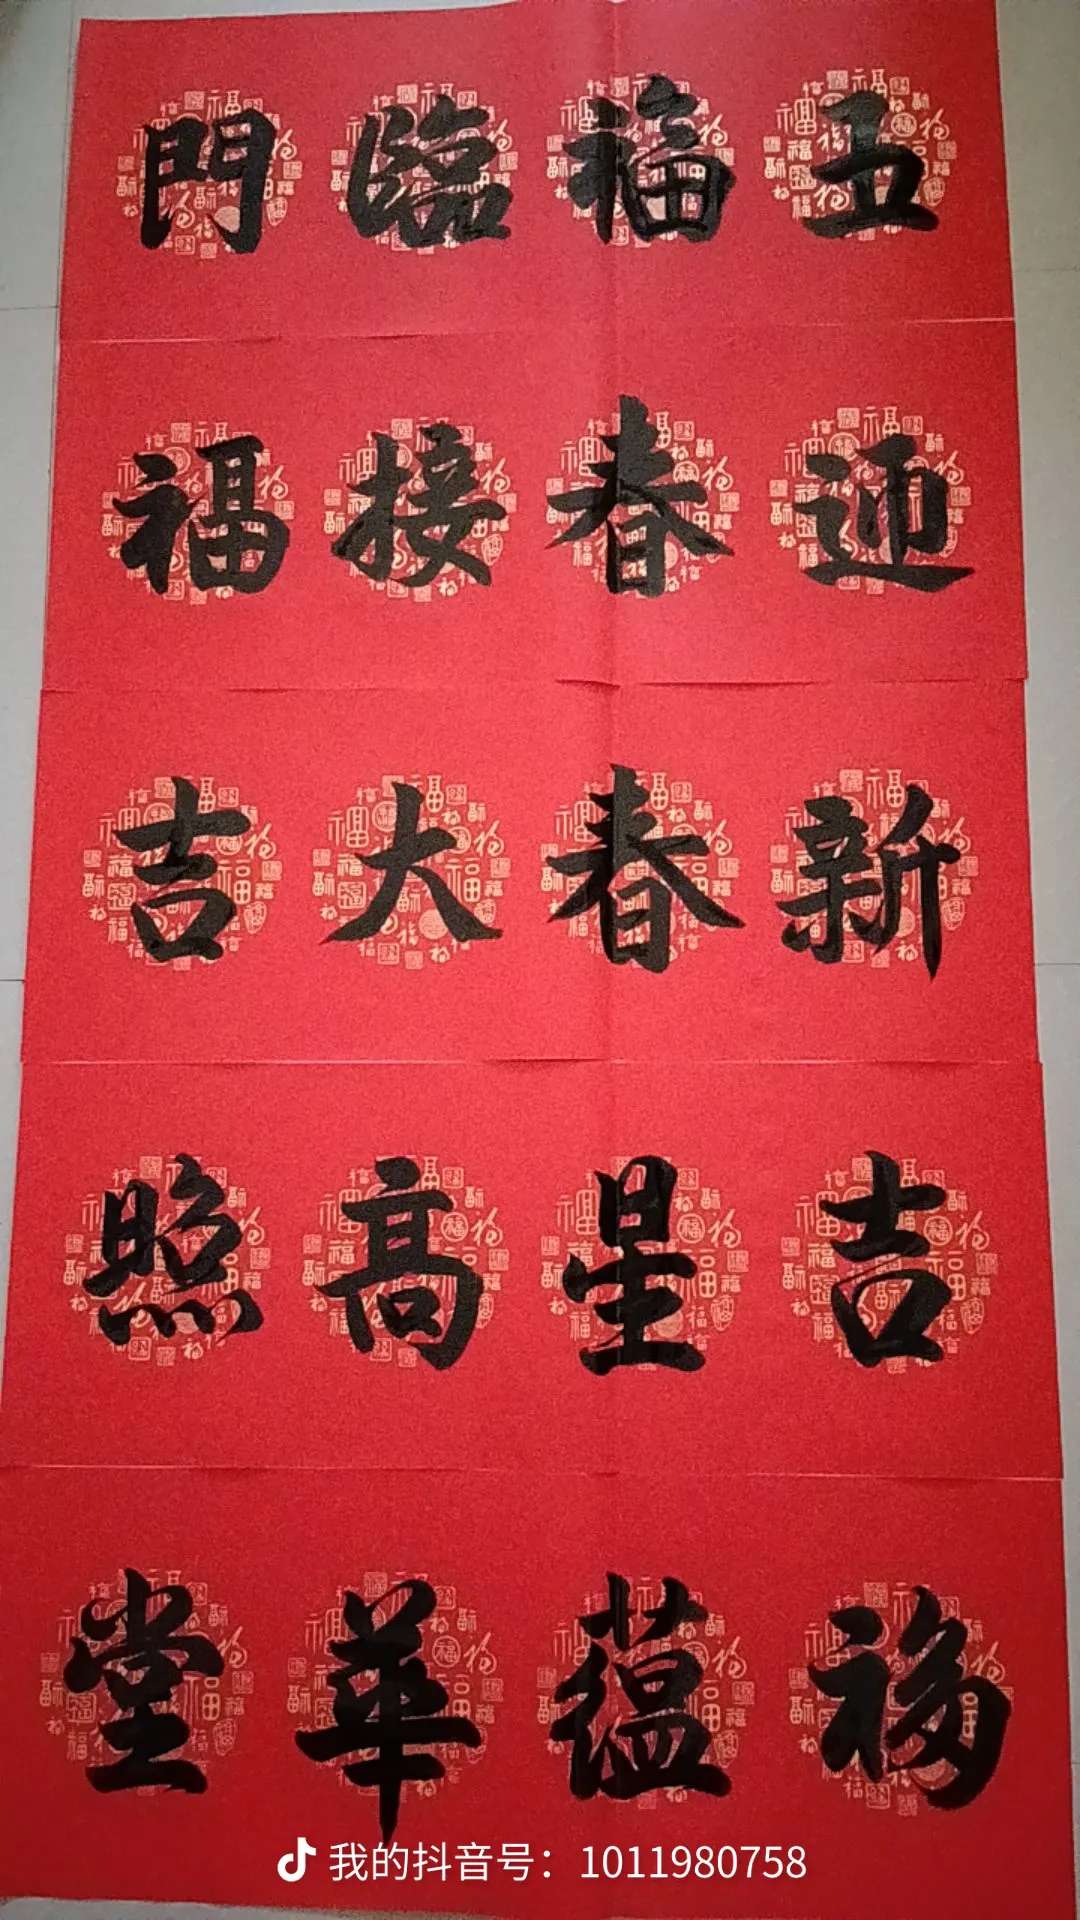 五福臨門
迎春接福
新春大吉
吉星高照
福蕴華堂
我的抖音号：1011980758